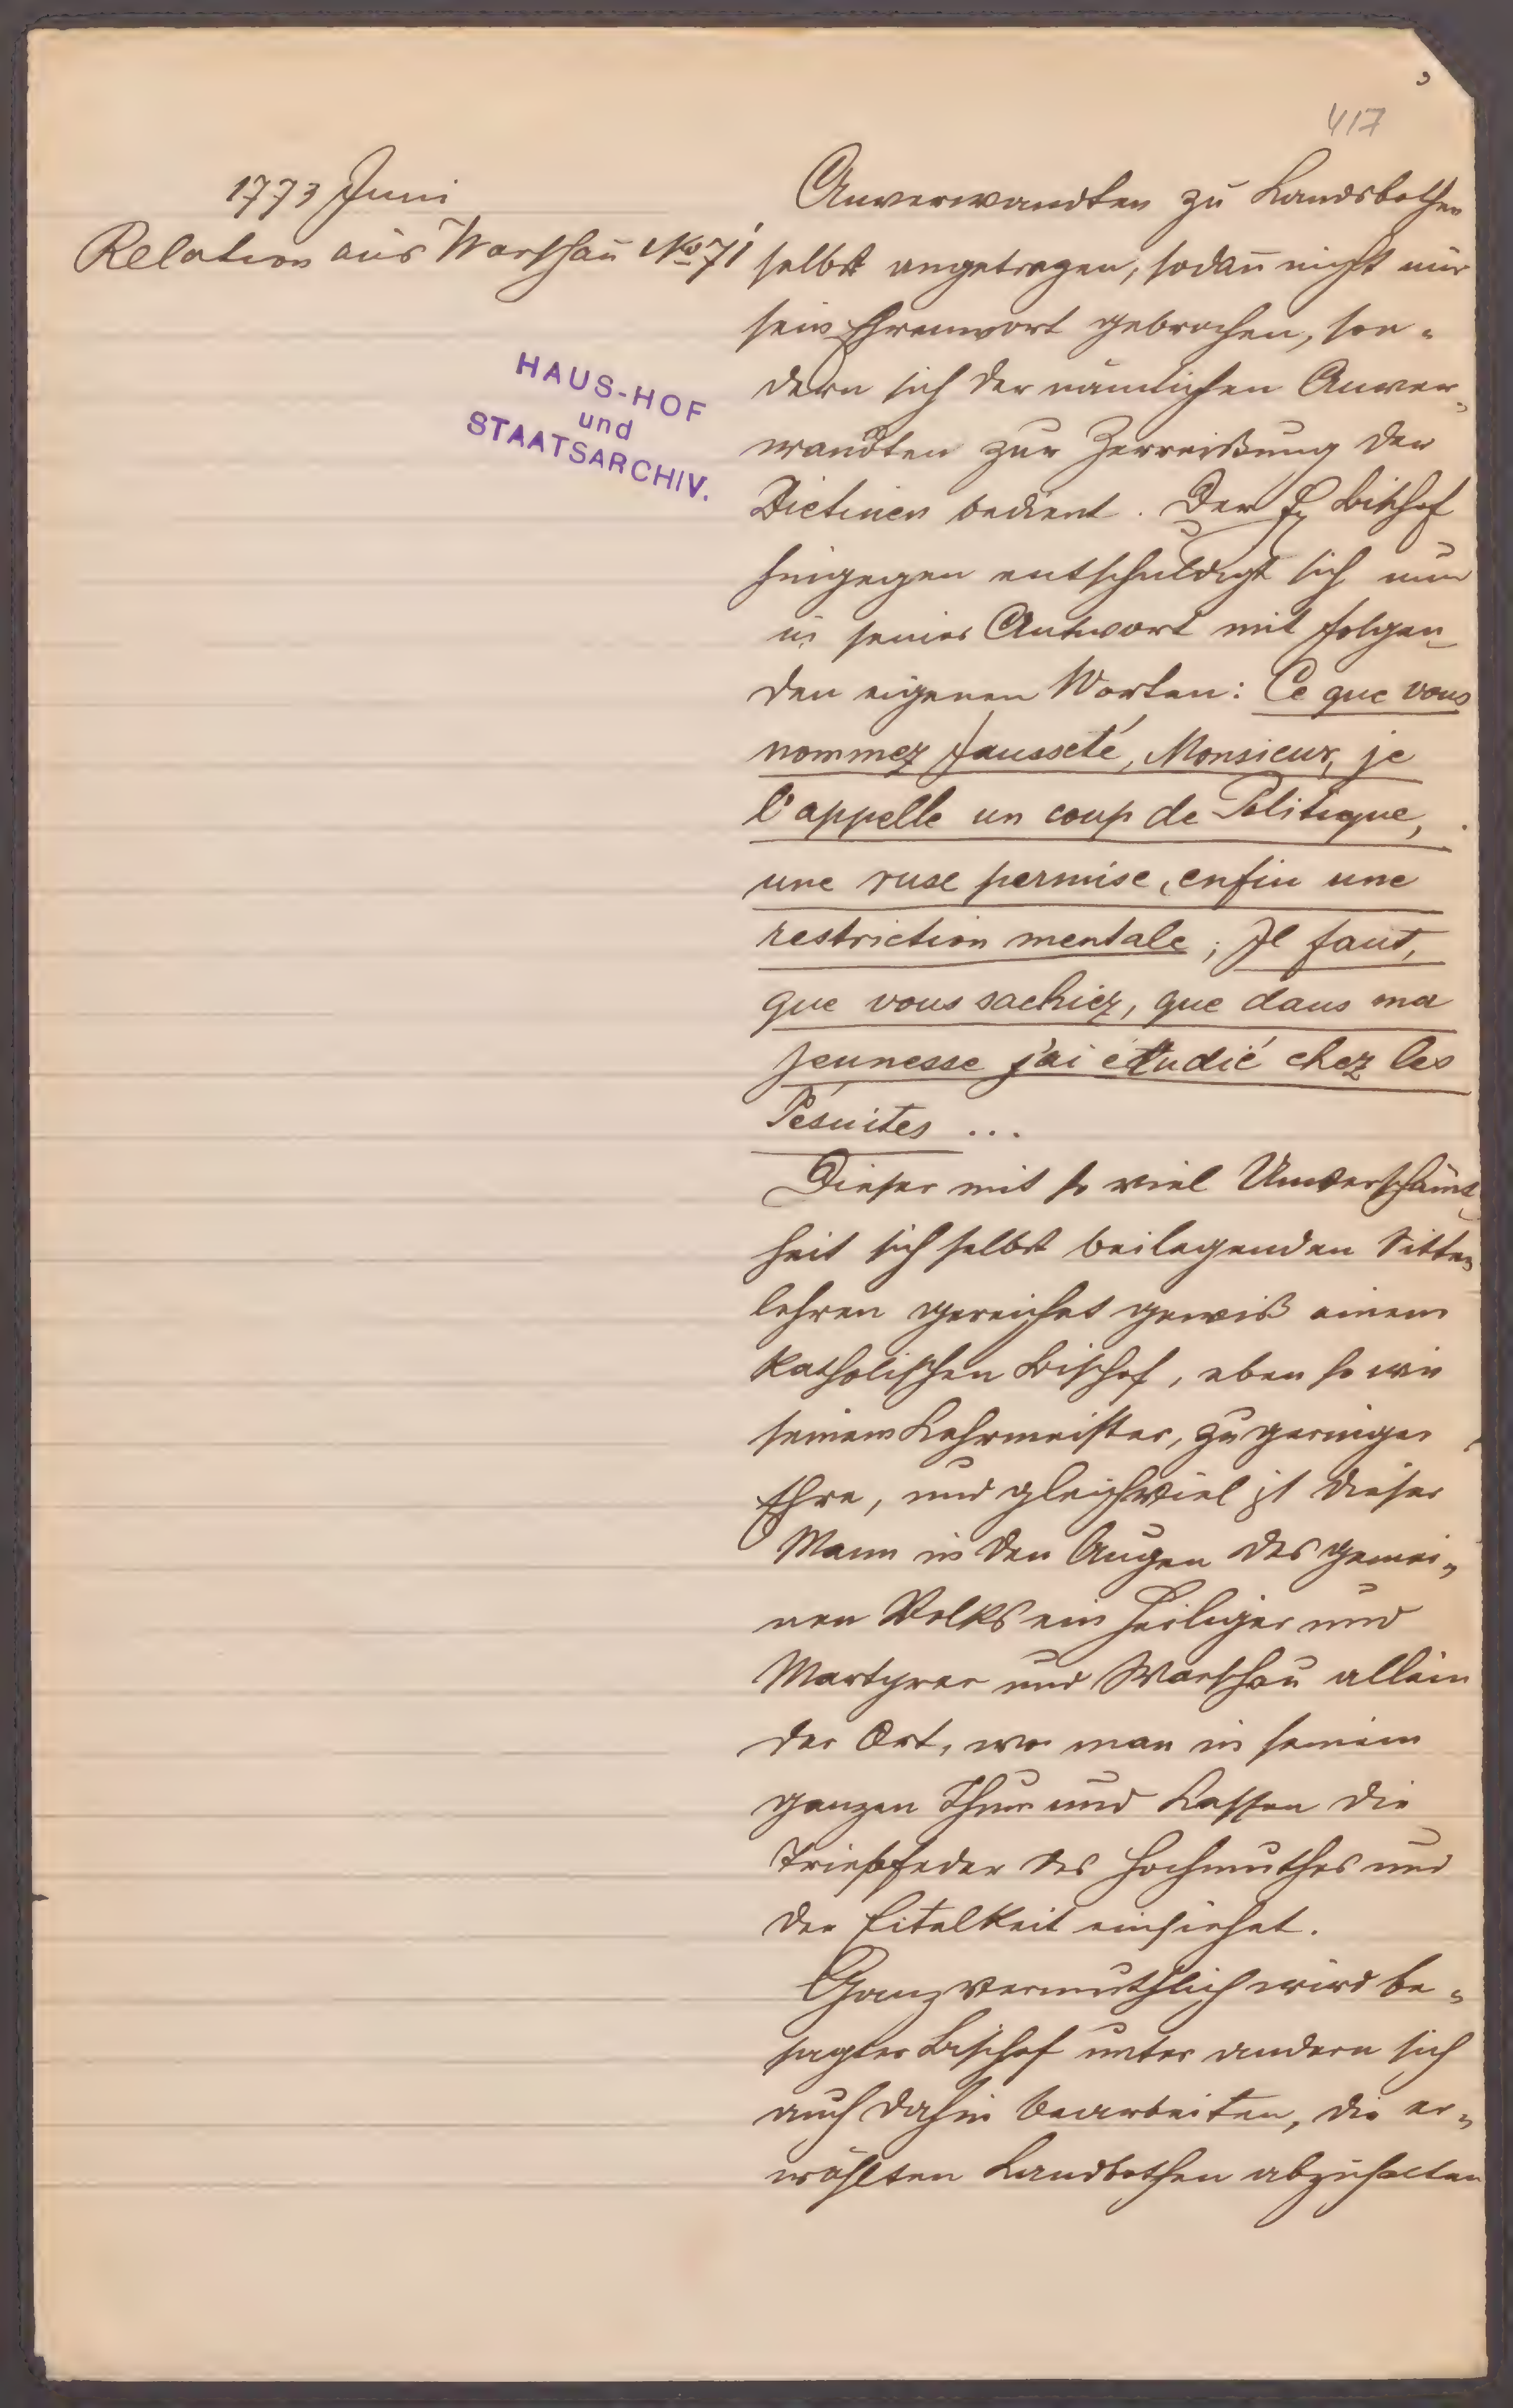 417
1773 Juni
Relation aus Warschau No 71
HAUS-HOF
und
STAATSARCHIV.
Anverwandten zu Landsbothen
selbst angetragen, sodañ nicht nur
sein Ehrenwort gebrochen, son=
dern sich der nämlichen Anver=
wandten zur Zerreißung der
Dietinen bedient. Der H. Bischof
hingegen entschuldigt sich nun
in seiner Antwort mit folgen=
den eigenen Worten: Ce que vous
nommez fausseté, Monsieur, je
l'appelle un coup de Politique,
une ruse permise, enfin une
restriction mentale; Il faut,
que vous sachiez, que dans ma
jeunesse j'ai étudié chez les
Jésuites ...
Dieser mit so viel Unverschämt=
heit sich selbst beilegenden Sitten
lehren gereichet gewiß einem
katholischen Bischof, eben so wie
seinem Lehrmeister, zu geringer
Ehre, und gleichviel ist dieser
Mann in den Augen des gemei=
nen Volks ein Heiliger und
Martyrer und Warschau allein
der Ort, wo man in seinem
ganzen Thun und Lassen die
Triebfeder des Hochmuthes und
der Eitelkeit einsiehet.
Ganz vermuthlich wird be=
sagter Bischof unter andern sich
auch dahin bearbeiten, die er=
wählten Landbothen abzuhalten